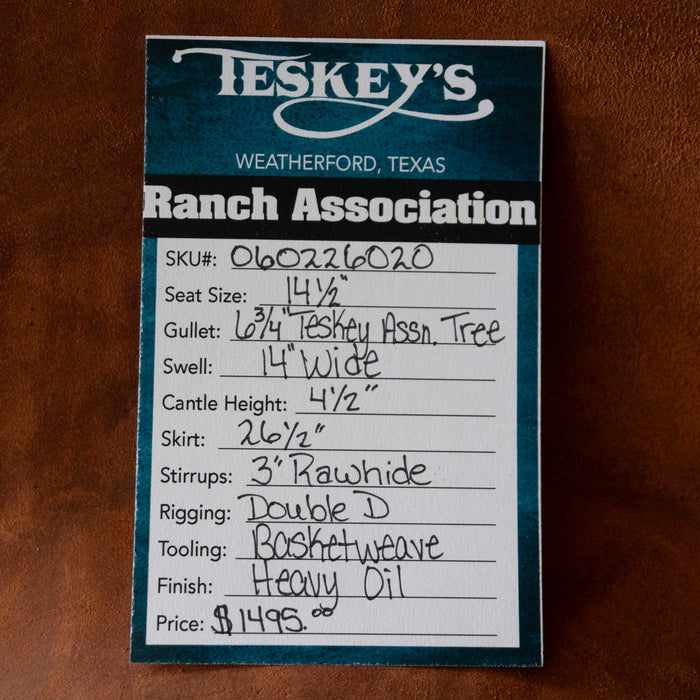 TESKEY'S
WEATHERFORD, TEXAS
Ranch Association
SKU#: 060226020
Seat Size: 14 1/2"
Gullet: 6 3/4" Teskey Assn. Tree
Swell: 14" Wide
Cantle Height: 4 1/2"
Skirt: 26 1/2"
Stirrups: 3" Rawhide
Rigging: Double D
Tooling: Basketweave
Finish: Heavy Oil
Price: $1495.00